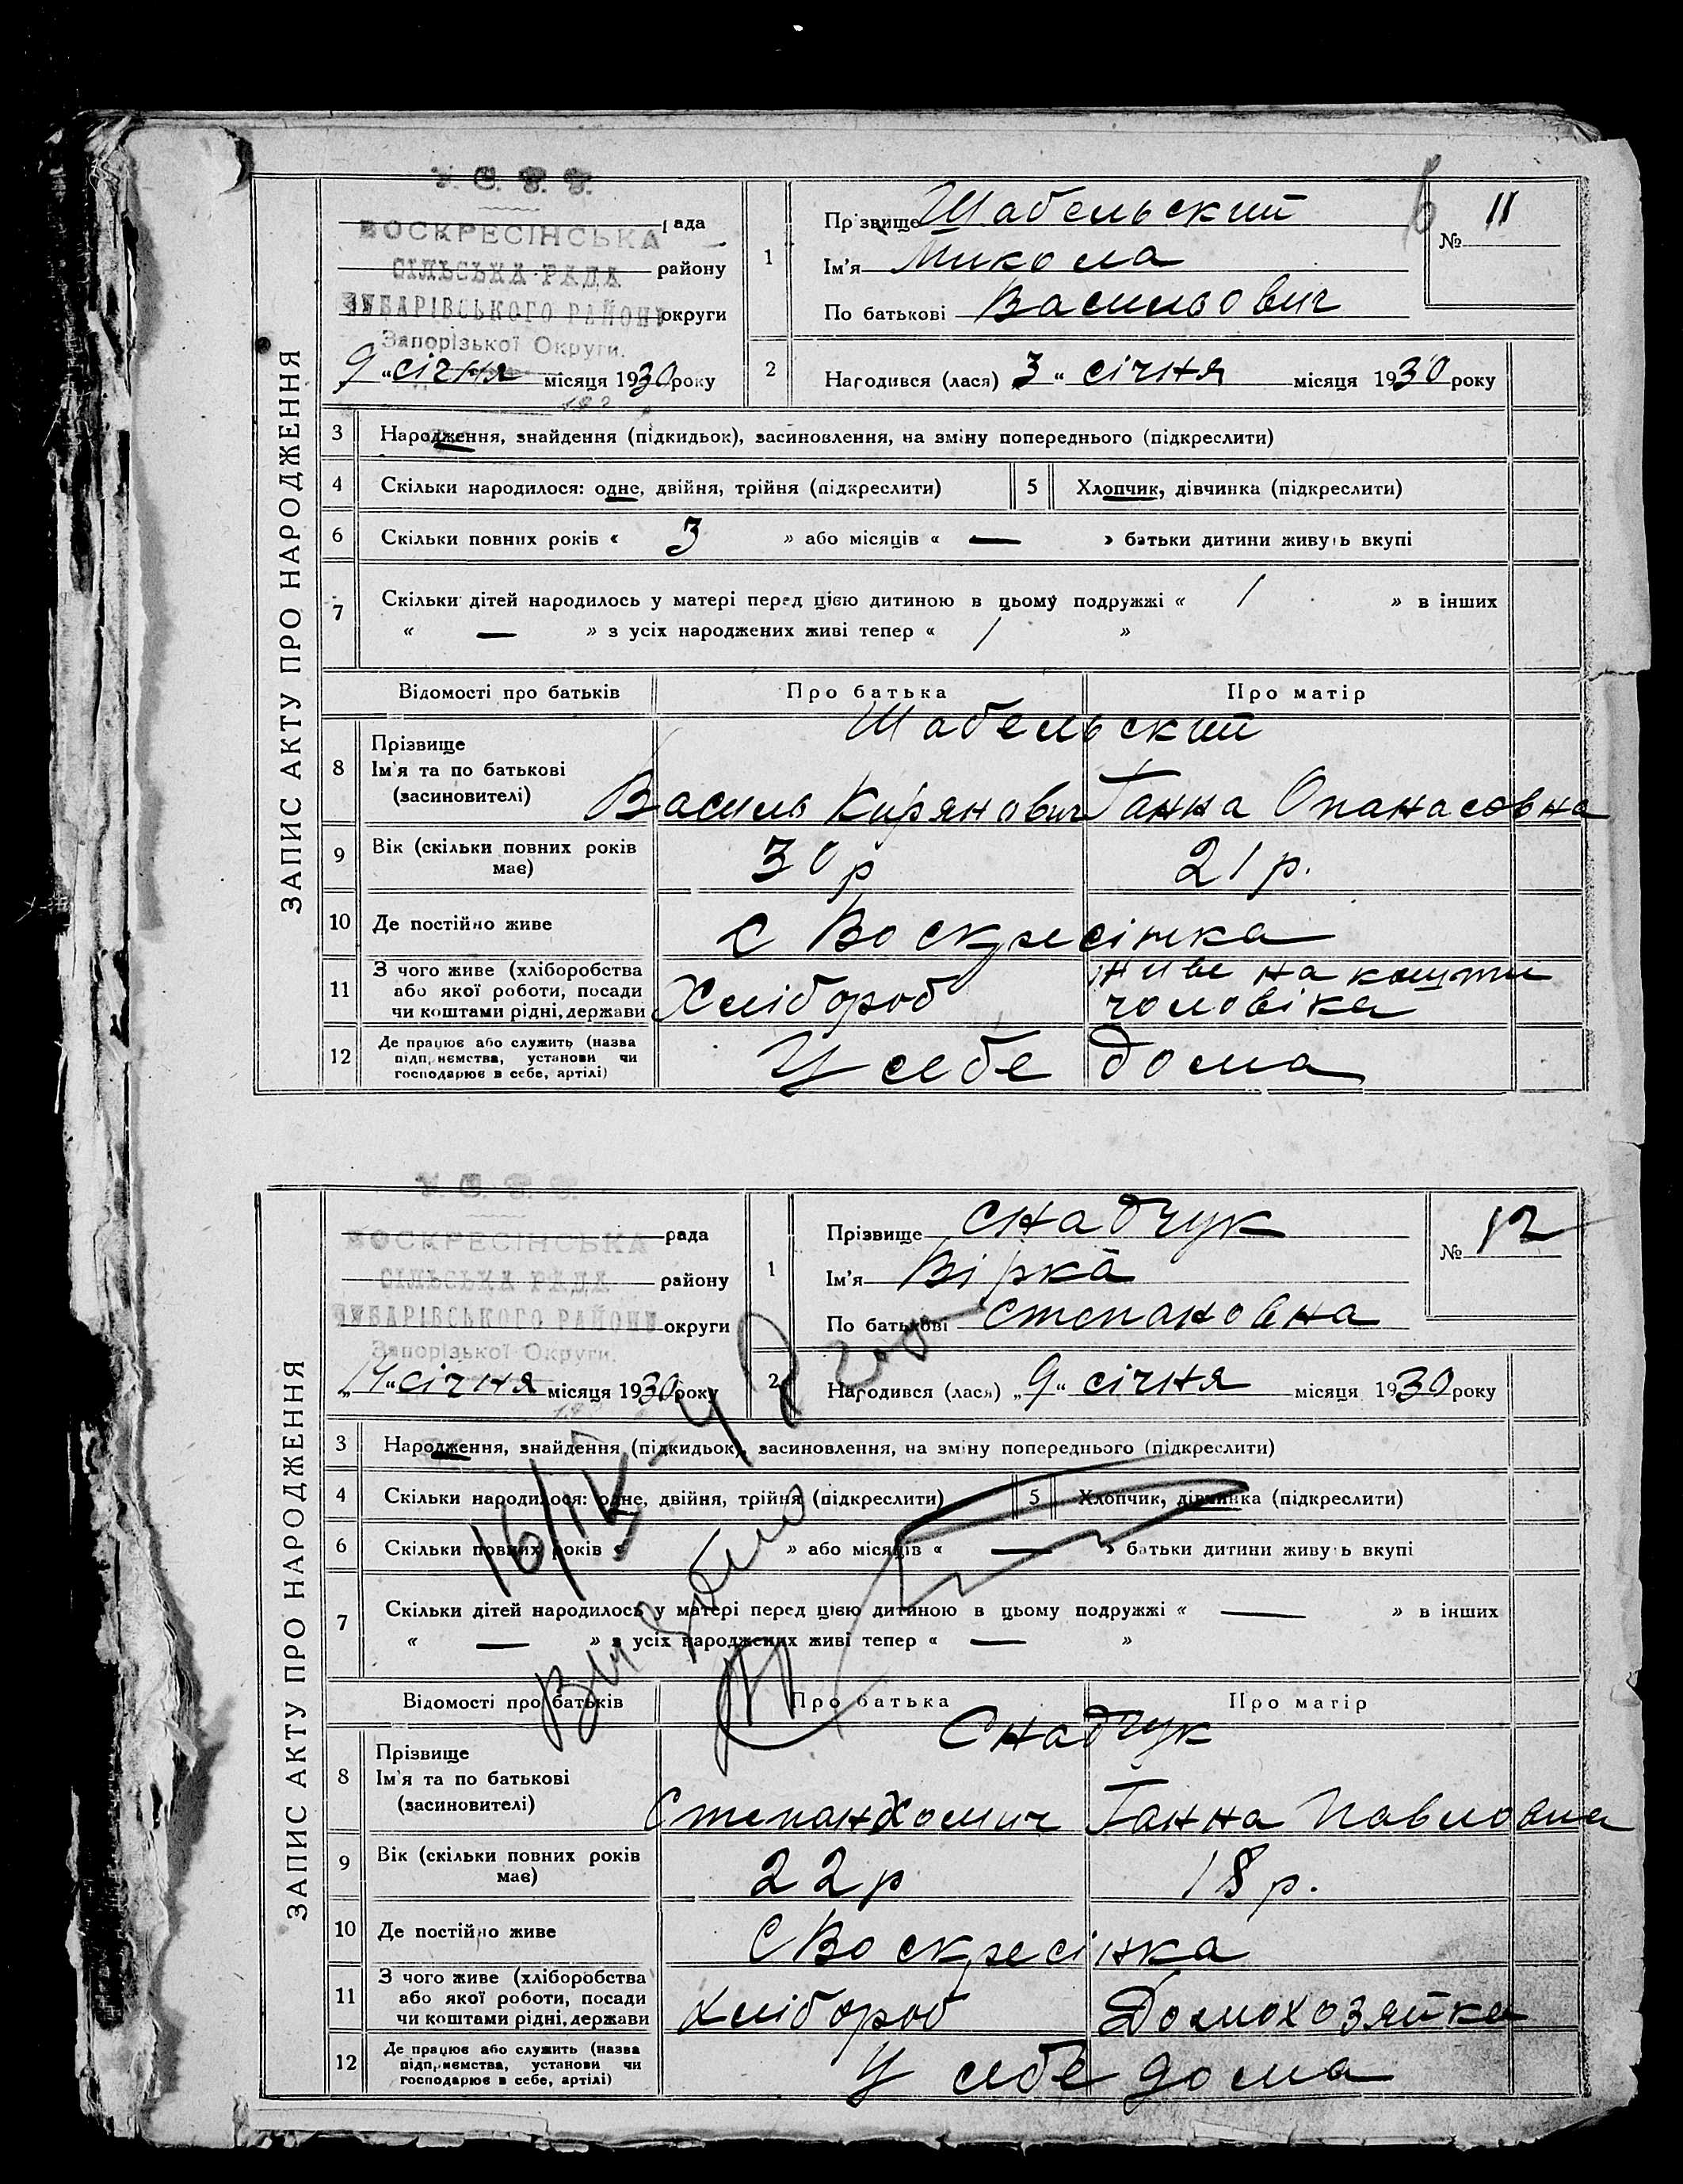 У. С. Р. Р.
ВОСКРЕСІНСЬКА рада
СІЛЬСЬКА РАДА району
ЧУБАРІВСЬКОГО РАЙОНУ округи
Запорізької Округи.
9 „ січня місяця 1930 року
ЗАПИС АКТУ ПРО НАРОДЖЕННЯ
1 Прізвище Шабельский
Ім'я Микола
По батькові Васильович
№ 11
2 Народився (лася) 3 „ січня місяця 1930 року
3 Народження, знайдення (підкидьок), засиновлення, на зміну попереднього (підкреслити)
4 Скільки народилося: одне, двійня, трійня (підкреслити) 5 Хлопчик, дівчинка (підкреслити)
6 Скільки повних років « 3 » або місяців « — » батьки дитини живуть вкупі
7 Скільки дітей народилось у матері перед цією дитиною в цьому подружжі « 1 » в інших
« — » з усіх народжених живі тепер « 1 »
Відомості про батьків Про батька Про матір
8 Прізвище Шабельский
Ім'я та по батькові
(засиновителі) Василь Кирянович Ганна Опанасовна
9 Вік (скільки повних років має) 30 р 21 р.
10 Де постійно живе с Воскресінка
11 З чого живе (хліборобства живе на кошти
або якої роботи, посади
чи коштами рідні, держави Хлібороб чоловіка
12 Де працює або служить (назва
підприємства, установи чи
господарює в себе, артілі) У себе дома
У. С. Р. Р.
ВОСКРЕСІНСЬКА рада
СІЛЬСЬКА РАДА району
ЧУБАРІВСЬКОГО РАЙОНУ округи
Запорізької Округи.
„14„ січня місяця 1930 року
ЗАПИС АКТУ ПРО НАРОДЖЕННЯ
1 Прізвище Снадчук
Ім'я Вірка
По батькові Степановна
№ 12
2 Народився (лася) „9„ січня місяця 1930 року
3 Народження, знайдення (підкидьок), засиновлення, на зміну попереднього (підкреслити)
4 Скільки народилося: одне, двійня, трійня (підкреслити) 5 Хлопчик, дівчинка (підкреслити)
6 Скільки повних років « » або місяців « — » батьки дитини живуть вкупі
7 Скільки дітей народилось у матері перед цією дитиною в цьому подружжі « — » в інших
« — » з усіх народжених живі тепер « — »
Відомості про батьків Про батька Про матір
8 Прізвище Снадчук
Ім'я та по батькові
(засиновителі) Степан Хомич Ганна Павловна
9 Вік (скільки повних років має) 22 р 18 р.
10 Де постійно живе С Воскресінка
11 З чого живе (хліборобства
або якої роботи, посади
чи коштами рідні, держави Хлібороб Домохозяйка
12 Де працює або служить (назва
підприємства, установи чи
господарює в себе, артілі) У себе дома